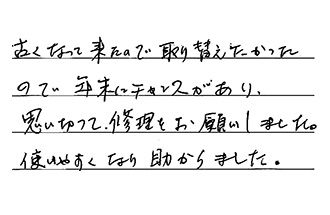 古くなって来たので取り替えたかった
ので年末にチャンスがあり、
思い切って、修理をお願いしました。
使いやすくなり助かりました。